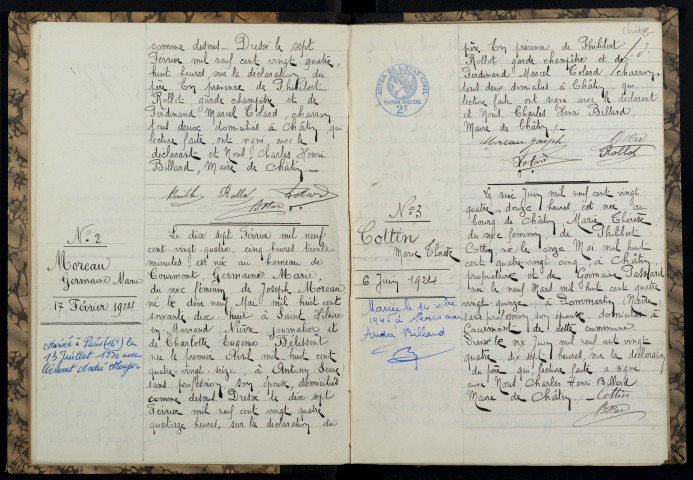 comme dessus. Dressé le sept
Février mil neuf cent vingt quatre,
huit heures, sur la déclaration du
père En présence de Philibert
Rollot, garde champêtre et de
Ferdinand Marcel Colard, charron,
tous deux domiciliés à Châtin qui
lecture faite, ont signé avec le
déclarant et Nous, Charles Henri
Billard, Maire de Châtin.
Rollot
N° 2
Moreau
Germaine Marie
17 Février 1924
Mariée à Paris (16e) le
13 Juillet 1950 avec
André
Le dix sept Février mil neuf
cent vingt quatre, cinq heures trente
minutes, est née au hameau de
Courmont, Germaine Marie
du sexe féminin de Joseph Moreau
né le dix neuf Mai mil huit cent
soixante dix huit à Saint Hilaire
en Morvand Nièvre, journalier et
de Charlotte Eugénie
née le premier Avril mil huit cent
quatre-vingt seize, à Antony Seine
sans profession son épouse, domiciliés
comme dessus. Dressé le dix sept
Février mil neuf cent vingt quatre
quatorze heures, sur la déclaration du
Châtin
père En présence de Philibert
Rollot garde champêtre et de
Ferdinand Marcel Colard charron,
tous deux domiciliés à Châtin, qui
lecture faite ont signé avec le déclarant
et Nous, Charles Henri Billard
Maire de Châtin,
Moreau Joseph
Rollot
ACTES DE L'ETAT CIVIL
PAPIER SPECIAL
2F
N° 3
Cottin
Marie Thérèse
6 Juin 1924
Mariée le 14 xbre
1945 à Nevers avec
André Billard
Le six Juin mil neuf cent vingt
quatre, douze heures, est née au
bourg de Châtin, Marie Thérèse
du sexe féminin de Philibert
Cottin né le onze Mai mil huit
cent quatre-vingt cinq, à Châtin
propriétaire et de Germaine
née le neuf Mars mil huit cent quatre
vingt quinze à Dommartin (Nièvre)
sans profession, son épouse, domiciliés à
Courmont de cette commune.
Dressé le six Juin mil neuf cent vingt
quatre dix sept heures, sur la déclaration
du père qui, lecture faite a signé
avec Nous Charles Henri Billard
Maire de Châtin,
Cottin